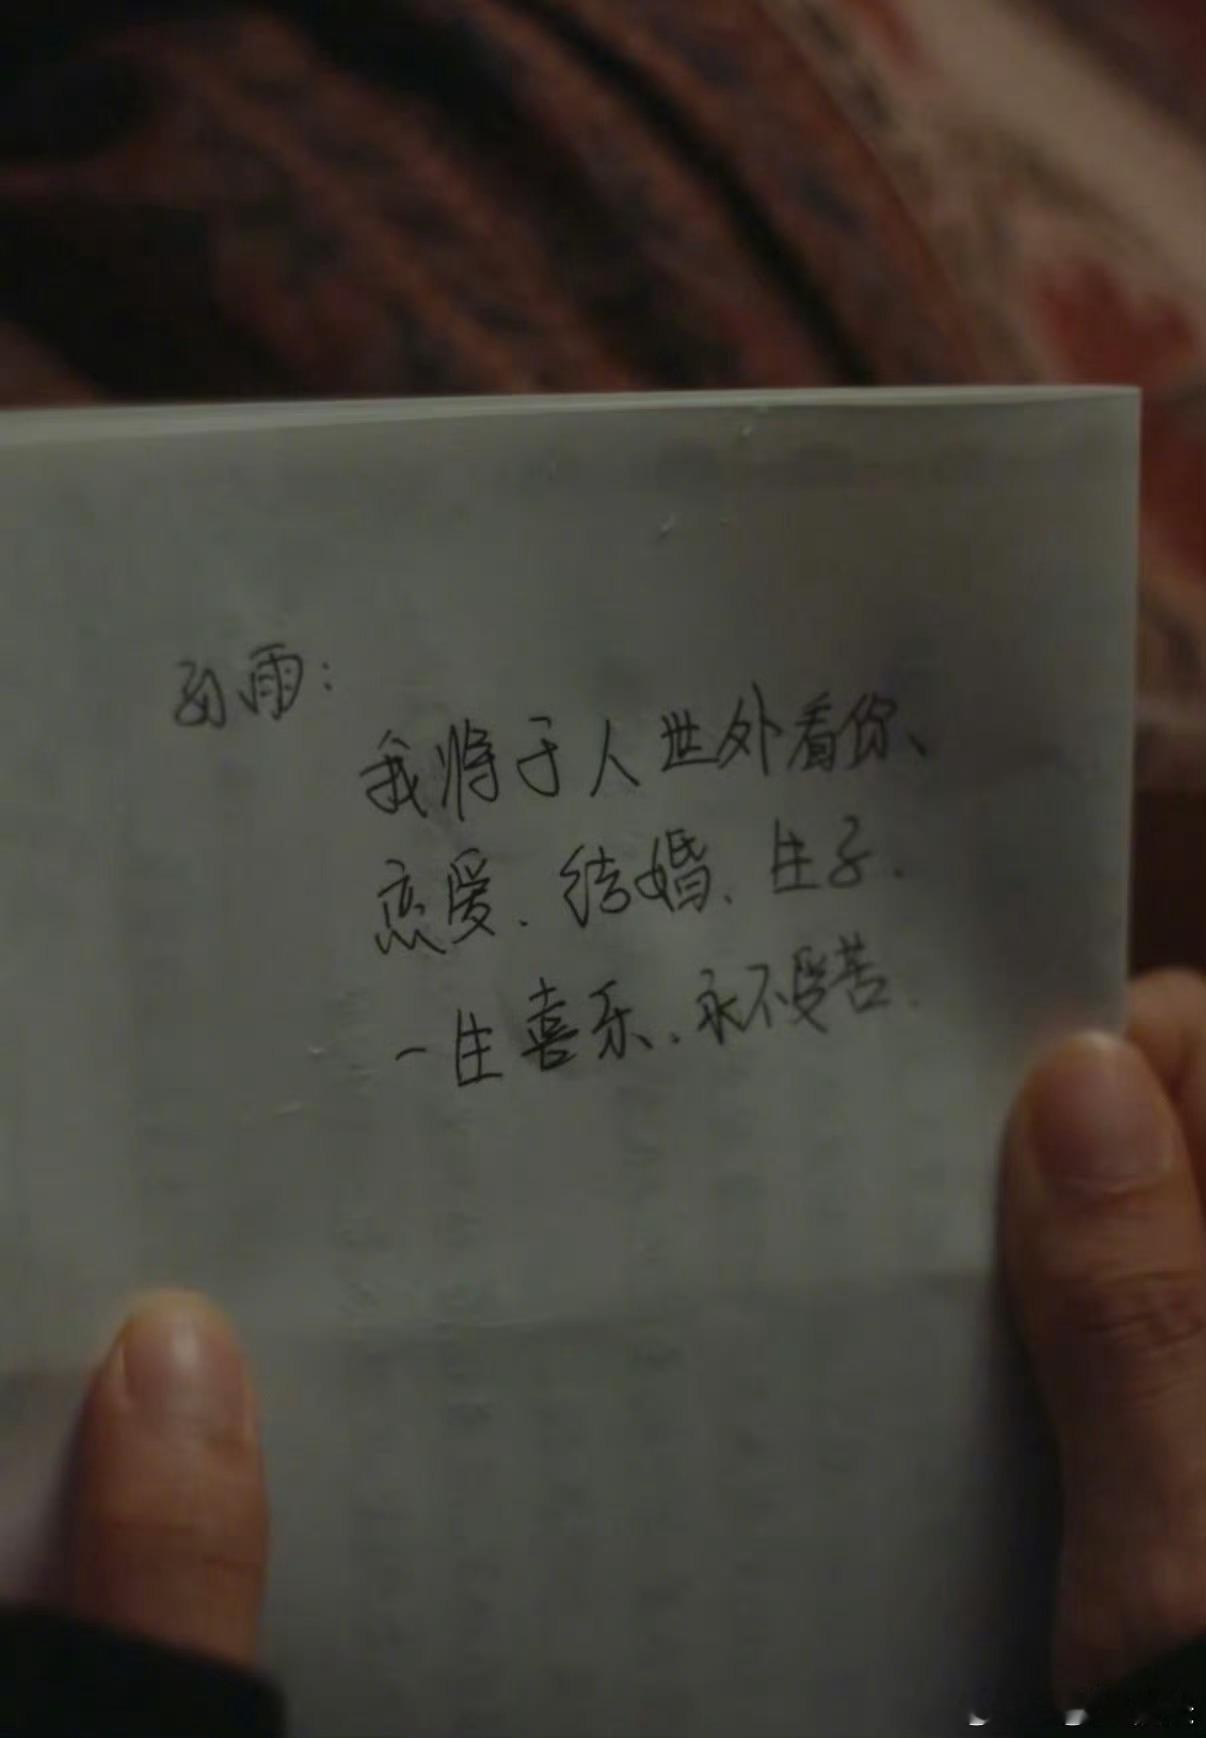 雨：
我将于人世外看你、
恋爱、结婚、生子、
一生喜乐、永不受苦.